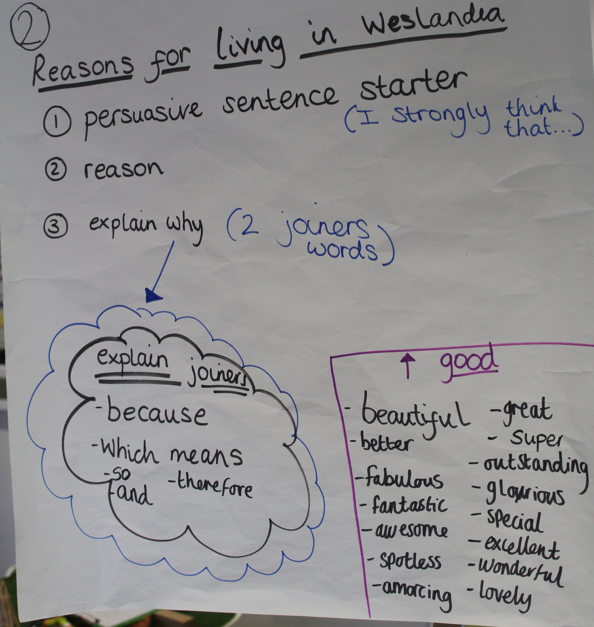 ②
Reasons for living in Weslandia
① persuasive sentence starter
(I strongly think
that...)
② reason
③ explain why (2 joiners
words)
explain joiners
- because
- which means
- so
- and - therefore
↑ good
- beautiful
- better
- fabulous
- fantastic
- awesome
- spotless
- amarcing
- great
- super
- outstanding
- glowrious
- special
- excellent
- wonderful
- lovely